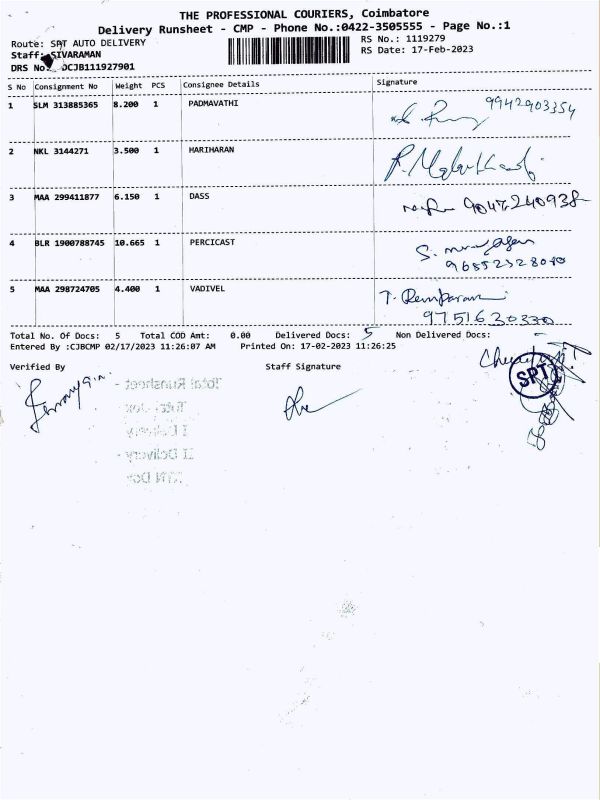 THE PROFESSIONAL COURIERS, Coimbatore
Delivery Runsheet - CMP - Phone No.:0422-3505555 - Page No.:1
Route: SPT AUTO DELIVERY
RS No.: 1119279
Staff: SIVARAMAN
RS Date: 17-Feb-2023
DRS No: DCJB111927901
S No Consignment No Weight PCS Consignee Details Signature
1 SLM 313885365 8.200 1 PADMAVATHI 9942903354
2 NKL 3144271 3.500 1 HARIHARAN
3 MAA 299411877 6.150 1 DASS 9047240938
4 BLR 1900788745 10.665 1 PERCICAST S.
5 MAA 298724705 4.400 1 VADIVEL T.
9751630330
Total No. Of Docs: 5 Total COD Amt: 0.00 Delivered Docs: 5 Non Delivered Docs: -
Entered By :CJBCMP 02/17/2023 11:26:07 AM Printed On: 17-02-2023 11:26:25
Verified By Staff Signature
SPT
Total Runsheet -
I Delivery
II Delivery -